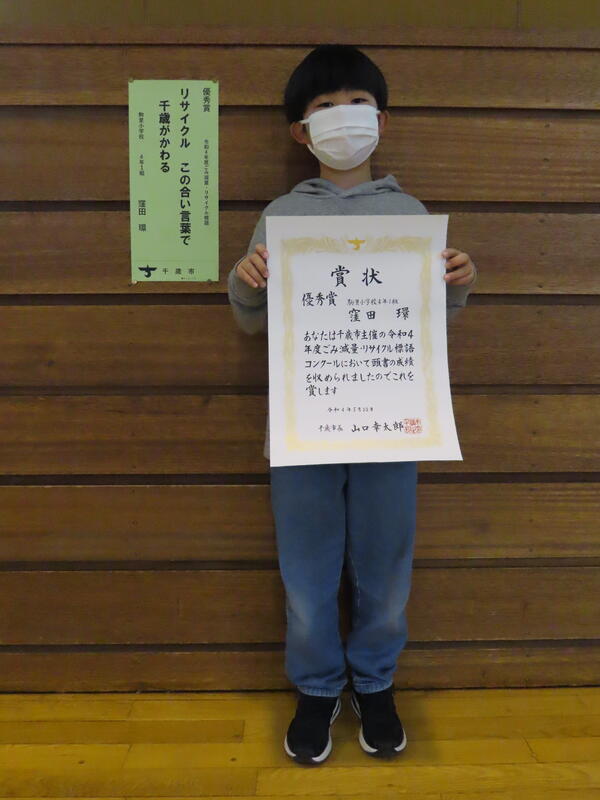 優秀賞
令和4年度ごみ減量・リサイクル標語
リサイクル この合い言葉で
千歳がかわる
駒里小学校 4年1組 窪田 環
千歳市
賞状
優秀賞
駒里小学校4年1組
窪田 環
あなたは千歳市主催の令和4
年度ごみ減量・リサイクル標語
コンクールにおいて頭書の成績
を収められましたのでこれを
賞します
千歳市長 山口幸太郎